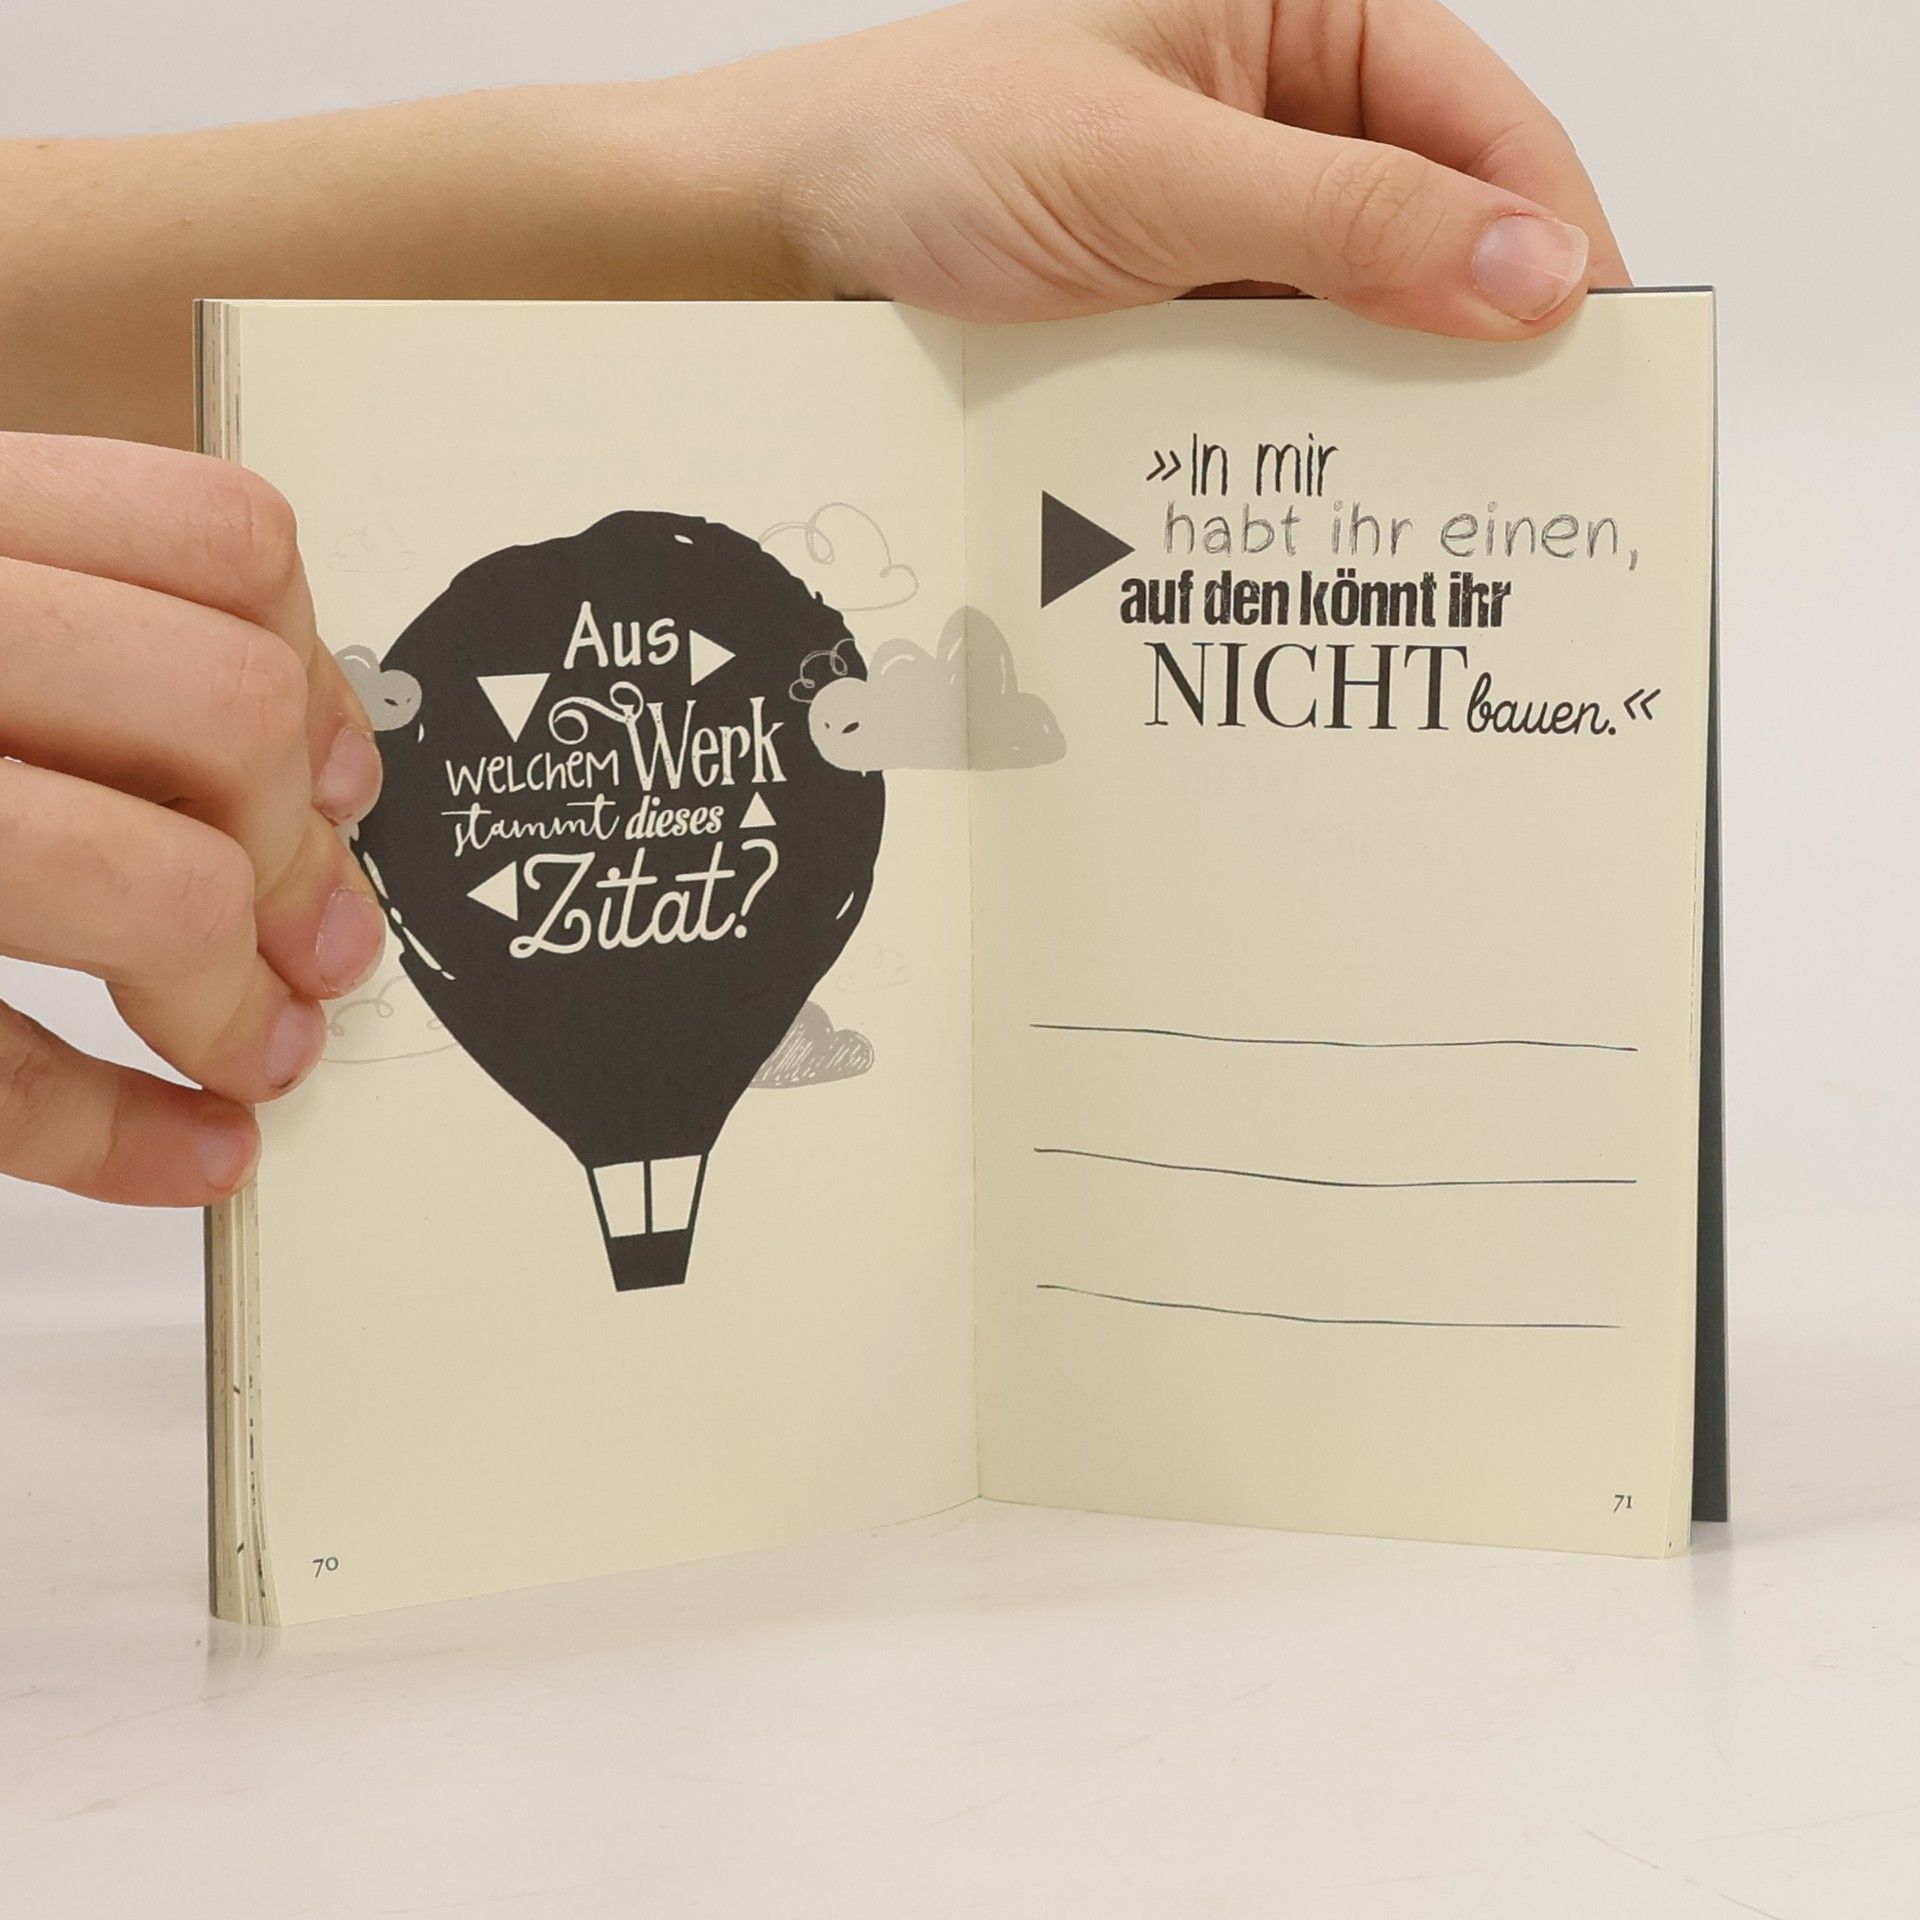 Aus
welchem Werk
stammt dieses
Zitat?
70
»In mir
habt ihr einen,
auf den könnt ihr
NICHT bauen.«
71